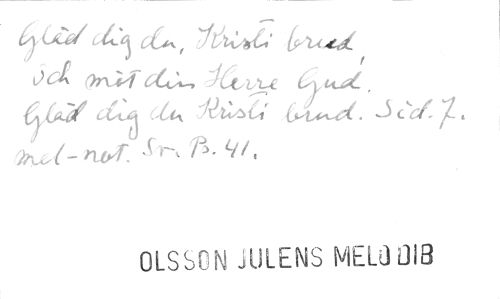 Gläd dig du, Kristi brud,
och möt din Herre Gud.
Gläd dig du Kristi brud. Sid. 7.
mel-not. Sv. Ps. 41.
OLSSON JULENS MELODIB